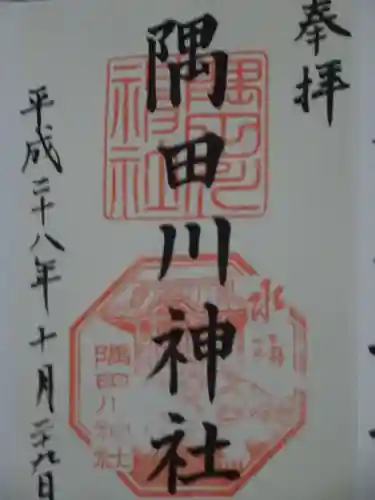 奉拝
隅田川神社
隅田川神社
水神
隅田川神社
平成二十八年十月二十九日